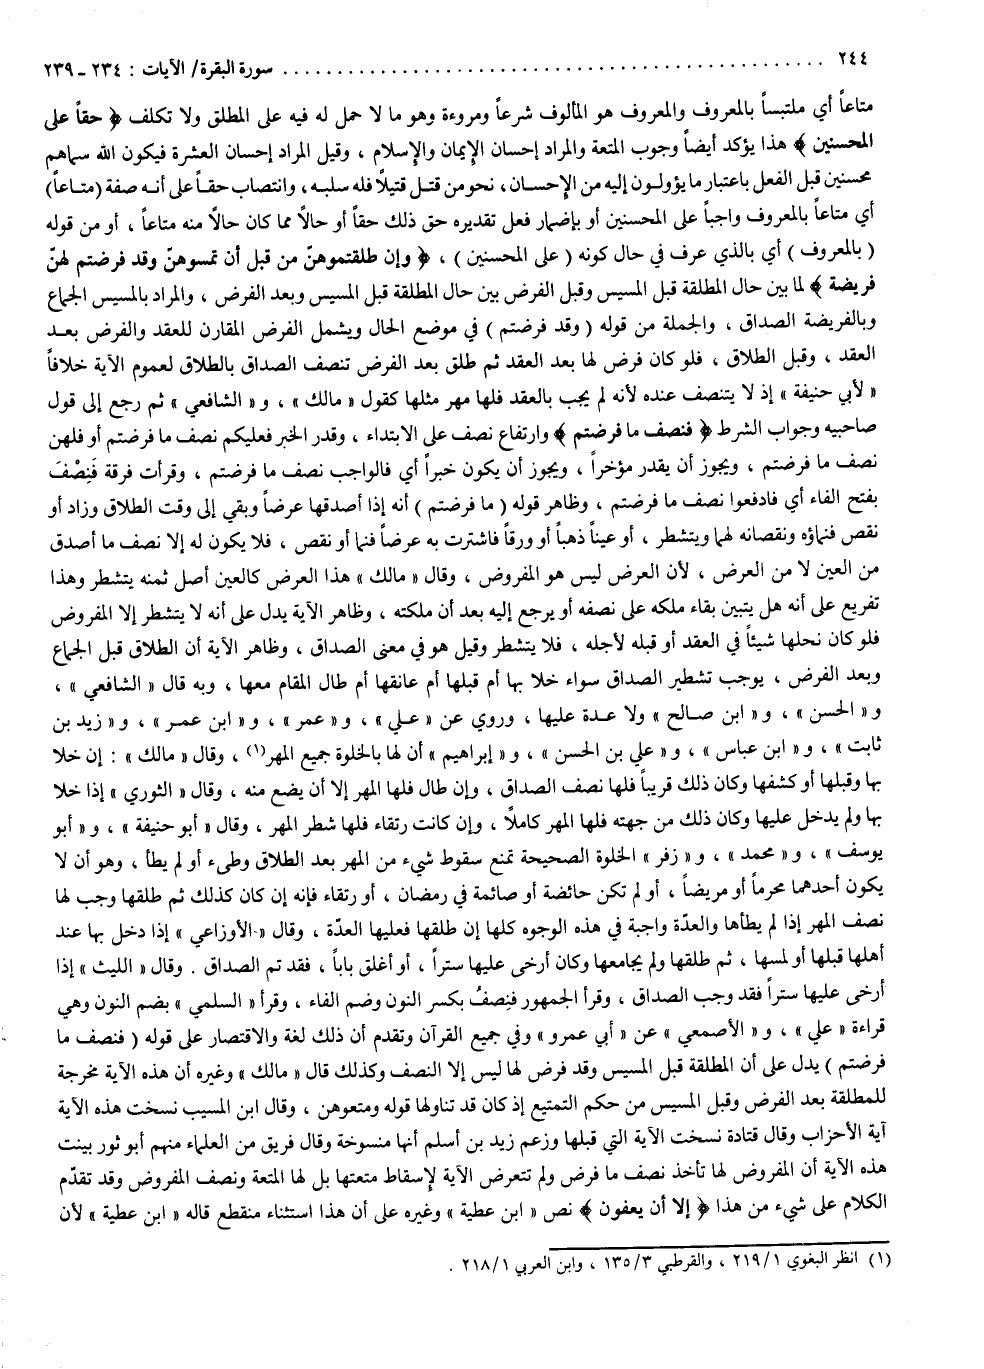 ٢٤٤ ................................................ سورة البقرة/ الآيات : ٢٣٤ - ٢٣٩
متاعاً أي ملتبساً بالمعروف والمعروف هو المألوف شرعاً ومروءة وهو ما لا حمل له فيه على المطلق ولا تكلف ﴿ حقاً على
المحسنين ﴾ هذا يؤكد أيضاً وجوب المتعة والمراد إحسان الإيمان والإسلام ، وقيل المراد إحسان العشرة فيكون الله سماهم
محسنين قبل الفعل باعتبار ما يؤولون إليه من الإحسان ، نحو من قتل قتيلاً فله سلبه ، وانتصاب حقاً على أنه صفة (متاعاً)
أي متاعاً بالمعروف واجباً على المحسنين أو بإضمار فعل تقديره حق ذلك حقاً أو حالاً مما كان حالاً منه متاعاً ، أو من قوله
( بالمعروف ) أي بالذي عرف في حال كونه ( على المحسنين ) ، ﴿ وإن طلقتموهنّ من قبل أن تمسوهنّ وقد فرضتم لهنّ
فريضة ﴾ لما بين حال المطلقة قبل المسيس وقبل الفرض بين حال المطلقة قبل المسيس وبعد الفرض ، والمراد بالمسيس الجماع
وبالفريضة الصداق ، والجملة من قوله ( وقد فرضتم ) في موضع الحال ويشمل الفرض المقارن للعقد والفرض بعد
العقد ، وقبل الطلاق ، فلو كان فرض لها بعد العقد ثم طلق بعد الفرض تنصف الصداق بالطلاق لعموم الآية خلافاً
« لأبي حنيفة » إذ لا يتنصف عنده لأنه لم يجب بالعقد فلها مهر مثلها كقول « مالك » ، و« الشافعي » ثم رجع إلى قول
صاحبيه وجواب الشرط ﴿ فنصف ما فرضتم ﴾ وارتفاع نصف على الابتداء ، وقدر الخبر فعليكم نصف ما فرضتم أو فلهن
نصف ما فرضتم ، ويجوز أن يقدر مؤخراً ، ويجوز أن يكون خبراً أي فالواجب نصف ما فرضتم ، وقرأت فرقة فَنِصْفَ
بفتح الفاء أي فادفعوا نصف ما فرضتم ، وظاهر قوله ( ما فرضتم ) أنه إذا أصدقها عرضاً وبقي إلى وقت الطلاق وزاد أو
نقص فنماؤه ونقصانه لهما ويتشطر ، أو عيناً ذهباً أو ورقاً فاشترت به عرضاً فنما أو نقص ، فلا يكون له إلا نصف ما أصدق
من العين لا من العرض ، لأن العرض ليس هو المفروض ، وقال « مالك » هذا العرض كالعين أصل ثمنه يتشطر وهذا
تفريع على أنه هل يتبين بقاء ملكه على نصفه أو يرجع إليه بعد أن ملكته ، وظاهر الآية يدل على أنه لا يتشطر إلا المفروض
فلو كان نحلها شيئاً في العقد أو قبله لأجله ، فلا يتشطر وقيل هو في معنى الصداق ، وظاهر الآية أن الطلاق قبل الجماع
وبعد الفرض ، يوجب تشطير الصداق سواء خلا بها أم قبلها أم عانقها أم طال المقام معها ، وبه قال « الشافعي » ،
و« الحسن » ، و« ابن صالح » ولا عدة عليها ، وروي عن « علي » ، و« عمر » ، و« ابن عمر » ، و« زيد بن
ثابت » ، و« ابن عباس » ، و« علي بن الحسن » ، و« إبراهيم » أن لها بالخلوة جميع المهر(١) ، وقال « مالك » : إن خلا
بها وقبلها أو كشفها وكان ذلك قريباً فلها نصف الصداق ، وإن طال فلها المهر إلا أن يضع منه ، وقال « الثوري » إذا خلا
بها ولم يدخل عليها وكان ذلك من جهته فلها المهر كاملاً ، وإن كانت رتقاء فلها شطر المهر ، وقال « أبو حنيفة » ، و« أبو
يوسف » ، و« محمد » ، و« زفر » الخلوة الصحيحة تمنع سقوط شيء من المهر بعد الطلاق وطىء أو لم يطأ ، وهو أن لا
يكون أحدهما محرماً أو مريضاً ، أو لم تكن حائضة أو صائمة في رمضان ، أو رتقاء فإنه إن كان كذلك ثم طلقها وجب لها
نصف المهر إذا لم يطأها والعدّة واجبة في هذه الوجوه كلها إن طلقها فعليها العدّة ، وقال « الأوزاعي » إذا دخل بها عند
أهلها قبلها أو لمسها ، ثم طلقها ولم يجامعها وكان أرخى عليها ستراً ، أو أغلق باباً ، فقد تم الصداق . وقال « الليث » إذا
أرخى عليها ستراً فقد وجب الصداق ، وقرأ الجمهور فنِصفُ بكسر النون وضم الفاء ، وقرأ « السلمي » بضم النون وهي
قراءة « علي » ، و« الأصمعي » عن « أبي عمرو » وفي جميع القرآن وتقدم أن ذلك لغة والاقتصار على قوله ( فنصف ما
فرضتم ) يدل على أن المطلقة قبل المسيس وقد فرض لها ليس إلا النصف وكذلك قال « مالك » وغيره أن هذه الآية مخرجة
للمطلقة بعد الفرض وقبل المسيس من حكم التمتيع إذ كان قد تناولها قوله ومتعوهن ، وقال ابن المسيب نسخت هذه الآية
آية الأحزاب وقال قتادة نسخت الآية التي قبلها وزعم زيد بن أسلم أنها منسوخة وقال فريق من العلماء منهم أبو ثور بينت
هذه الآية أن المفروض لها تأخذ نصف ما فرض ولم تتعرض الآية لإسقاط متعتها بل لها المتعة ونصف المفروض وقد تقدّم
الكلام على شيء من هذا ﴿ إلا أن يعفون ﴾ نص « ابن عطية » وغيره على أن هذا استثناء منقطع قاله « ابن عطية » لأن
(١) انظر البغوي ٢١٩/١ ، والقرطبي ١٣٥/٣ ، وابن العربي ٢١٨/١ .